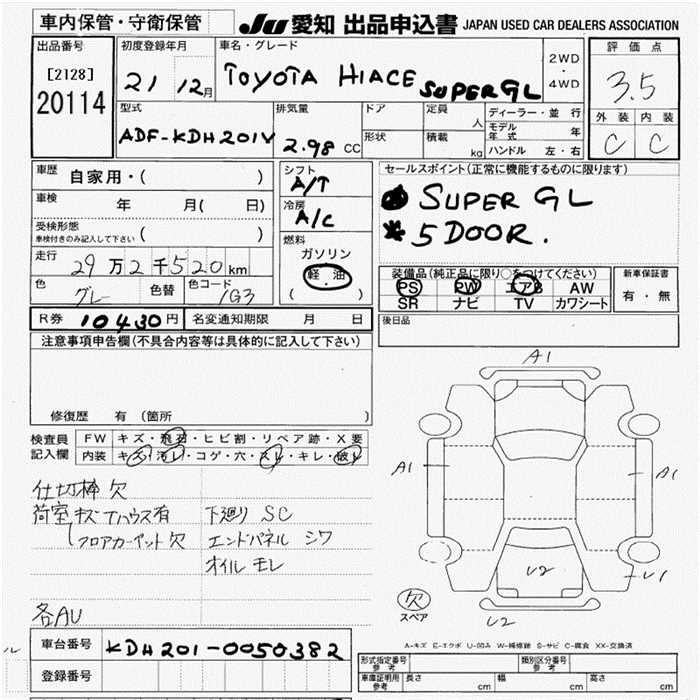 車内保管・守衛保管
JU 愛知 出品申込書 JAPAN USED CAR DEALERS ASSOCIATION
出品番号
[2128]
20114
初度登録年月
21 12月
車名・グレード
TOYOTA HIACE SUPER GL
2WD
・
4WD
評価点
3.5
外装 内装
C C
型式
ADF-KDH201V
排気量
2.98 CC
ドア
形状
定員
人
積載
kg
ディーラー・並行
モデル年式 年
ハンドル 左・右
車歴 自家用・( )
車検 年 月( 日)
受検形態
車検付きのみ記入して下さい ( )
走行 29万2千520km
色 グレー 色替 色コード 1G3
シフト
A/T
冷房
A/C
燃料
ガソリン
軽油
( )
セールスポイント(正常に機能するものに限ります)
SUPER GL
5 DOOR.
装備品(純正品に限り○をつけてください)
PS PW エアB AW
SR ナビ TV カワシート
新車保証書
有・無
R券 10430円 名変通知期限 月 日
後日品
注意事項申告欄(不具合内容等は具体的に記入して下さい)
修復歴 有 (箇所 )
検査員
記入欄
FW キズ・飛石・ヒビ割・リペア跡・X要
内装 キズ・汚レ・コゲ・穴・スレ・キレ・破レ
仕切棒 欠
荷室 キズ Tハウス有
フロアカーペット 欠
下廻り SC
エンドパネル シワ
オイル モレ
各AU
A1
A1
A1
U2
U1
U2
欠
スペア
A-キズ E-エクボ U-凹み W-補修跡 S-サビ C-腐食 XX-交換済
ル
車台番号 KDH201-0050382
登録番号
形式指定番号
参考
類別区分番号
参考
車庫証明用
参考
長さ cm 幅 cm 高さ cm